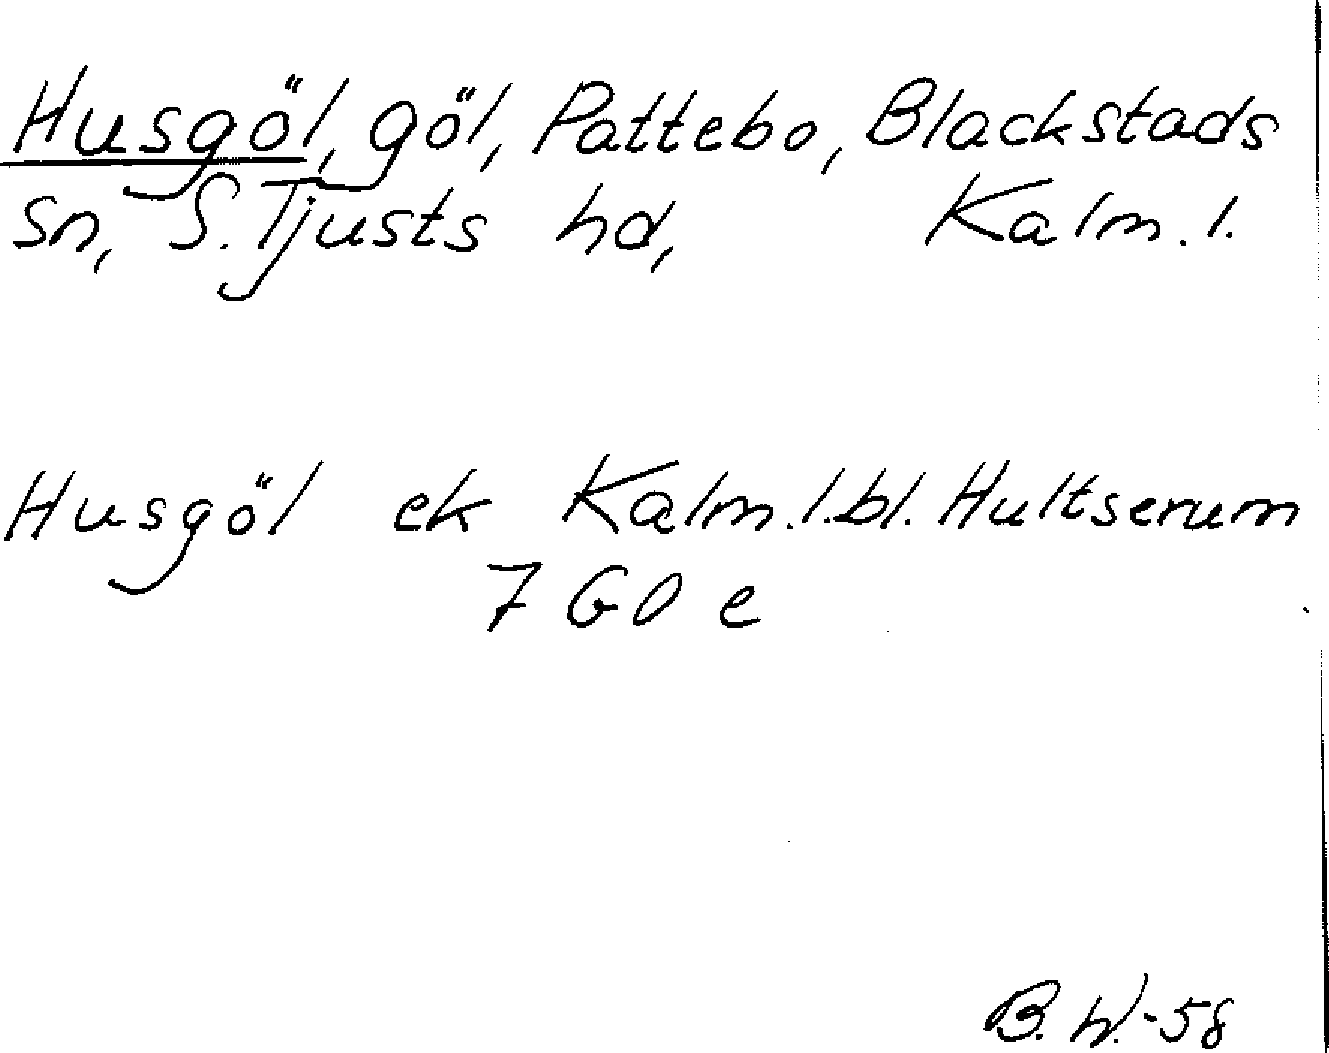 Husgöl, göl, Pattebo, Blackstads
sn, S. Tjusts hd, Kalm. l.
Husgöl ek Kalm. l. bl. Hultserum
7 G O e
B. W. -58